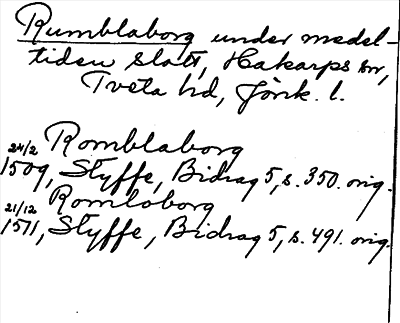 Rumblaborg under medel-
tiden slott, Hakarps sn,
Tveta hd, Jönk. l.
Romblaborg
24/2 1509, Styffe, Bidrag 5, s. 350. orig.
Romloborg
21/12 1511, Styffe, Bidrag 5, s. 491. orig.